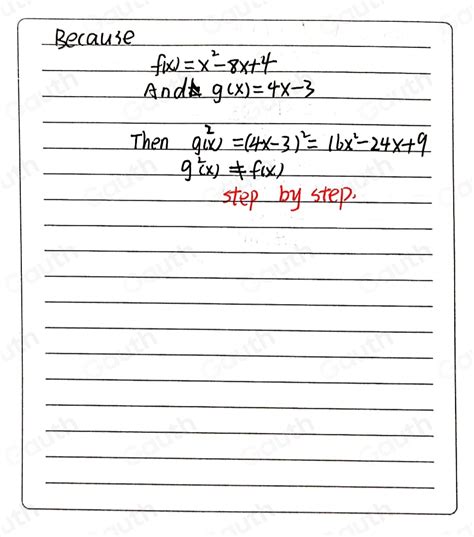 Because
f(x)=x²-8x+4
And g(x)=4x-3
Then g²(x)=(4x-3)²=16x²-24x+9
g²(x)≠f(x)
step by step.